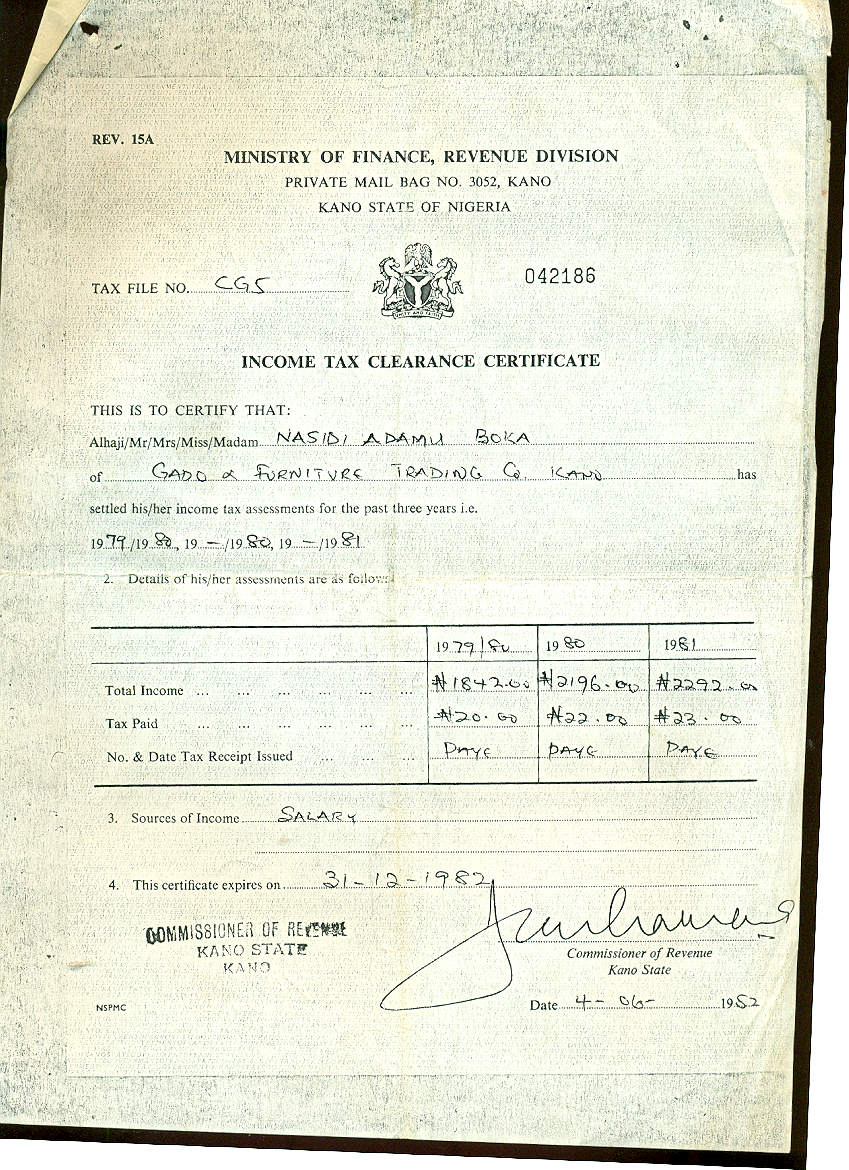 REV. 15A
MINISTRY OF FINANCE, REVENUE DIVISION
PRIVATE MAIL BAG NO. 3052, KANO
KANO STATE OF NIGERIA
TAX FILE NO. CG5
042186
UNITY AND FAITH
INCOME TAX CLEARANCE CERTIFICATE
THIS IS TO CERTIFY THAT:
Alhaji/Mr/Mrs/Miss/Madam NASIDI ADAMU BOKA
of GADO & FURNITURE TRADING Co KANO has
settled his/her income tax assessments for the past three years i.e.
1979/1980, 19 —/1980, 19 —/1981
2. Details of his/her assessments are as follows:
1979/80 1980 1981
Total Income ... ... ... ... ... ... ₦1842.00 ₦2196.00 ₦2292.00
Tax Paid ... ... ... ... ... ... ₦20.00 ₦22.00 ₦23.00
No. & Date Tax Receipt Issued ... ... ... PAYE PAYE PAYE
3. Sources of Income SALARY
4. This certificate expires on 31-12-1982
COMMISSIONER OF REVENUE
KANO STATE
KANO
Commissioner of Revenue
Kano State
NSPMC
Date 4-06- 1982